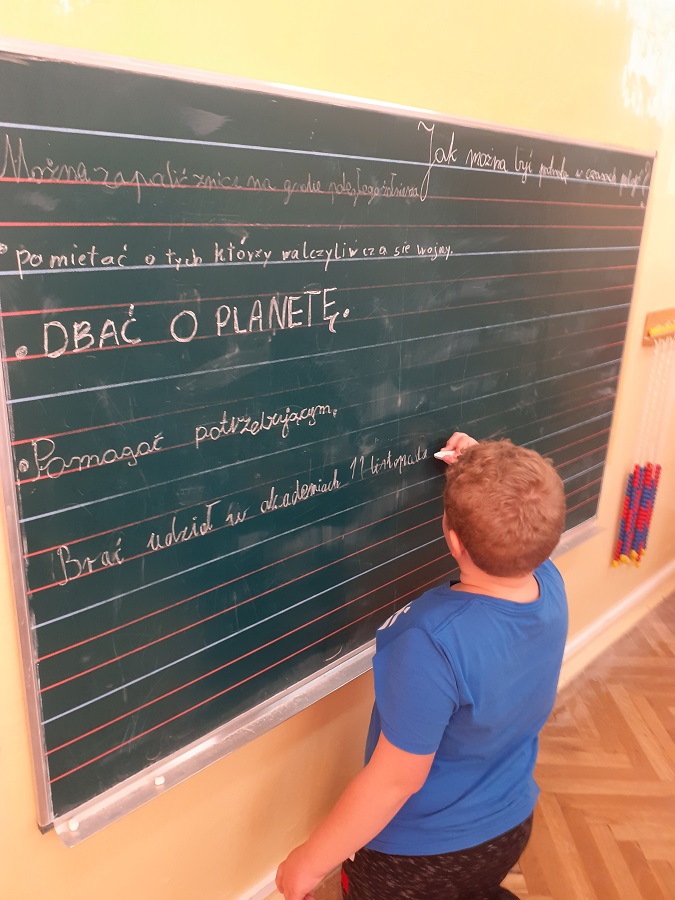 Jak można być patriotą w czasach pokoju?
Można zapalić znicz na grobie poległego żołnierza
pomietać o tych którzy walczyli w cza sie wojny.
. DBAĆ O PLANETĘ.
Pomagać potrzebującym.
Brać udział w akademiach 11 listopada